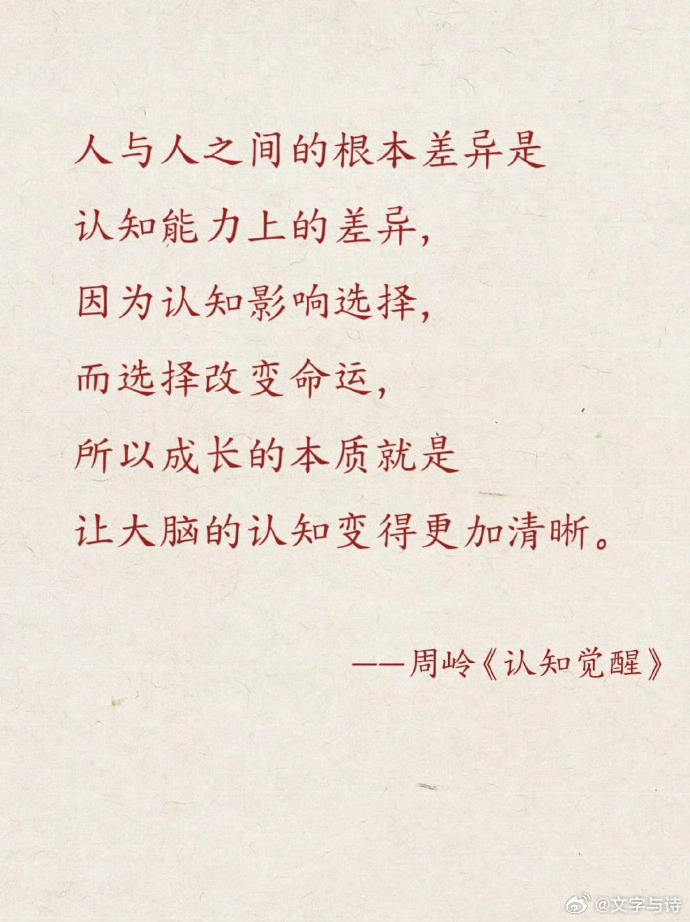 人与人之间的根本差异是
认知能力上的差异,
因为认知影响选择,
而选择改变命运,
所以成长的本质就是
让大脑的认知变得更加清晰。
——周岭《认知觉醒》
@文字与诗